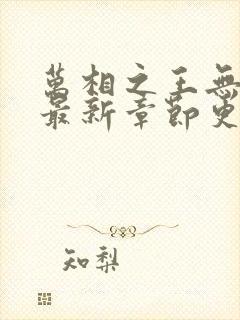 萬相之王無
最新章節更
知梨